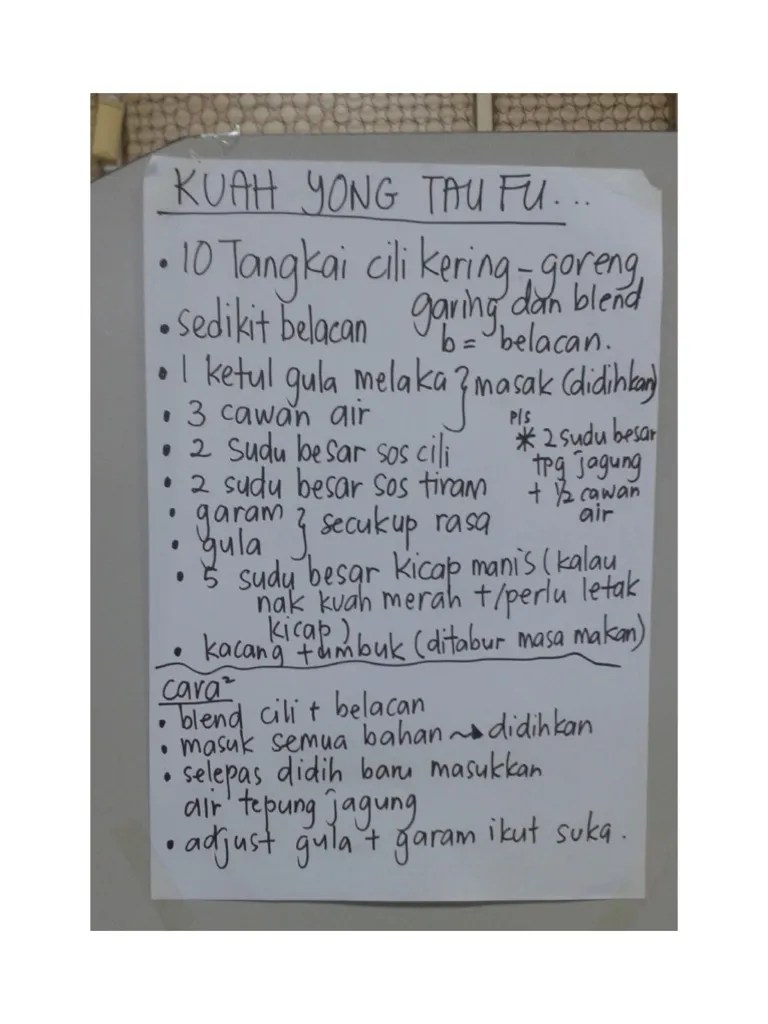 KUAH YONG TAU FU...
• 10 Tangkai cili kering - goreng
garing dan blend
b = belacan.
• sedikit belacan
• 1 ketul gula melaka } masak (didihkan)
• 3 cawan air
• 2 sudu besar sos cili
• 2 sudu besar sos tiram
P/s
* 2 sudu besar
tpg jagung
+ 1/2 cawan
air
• garam } secukup rasa
• gula
• 5 sudu besar kicap manis (kalau
nak kuah merah +/perlu letak
kicap)
• kacang tumbuk (ditabur masa makan)
cara²
• blend cili + belacan
• masuk semua bahan → didihkan
• selepas didih baru masukkan
air tepung jagung
• adjust gula + garam ikut suka.